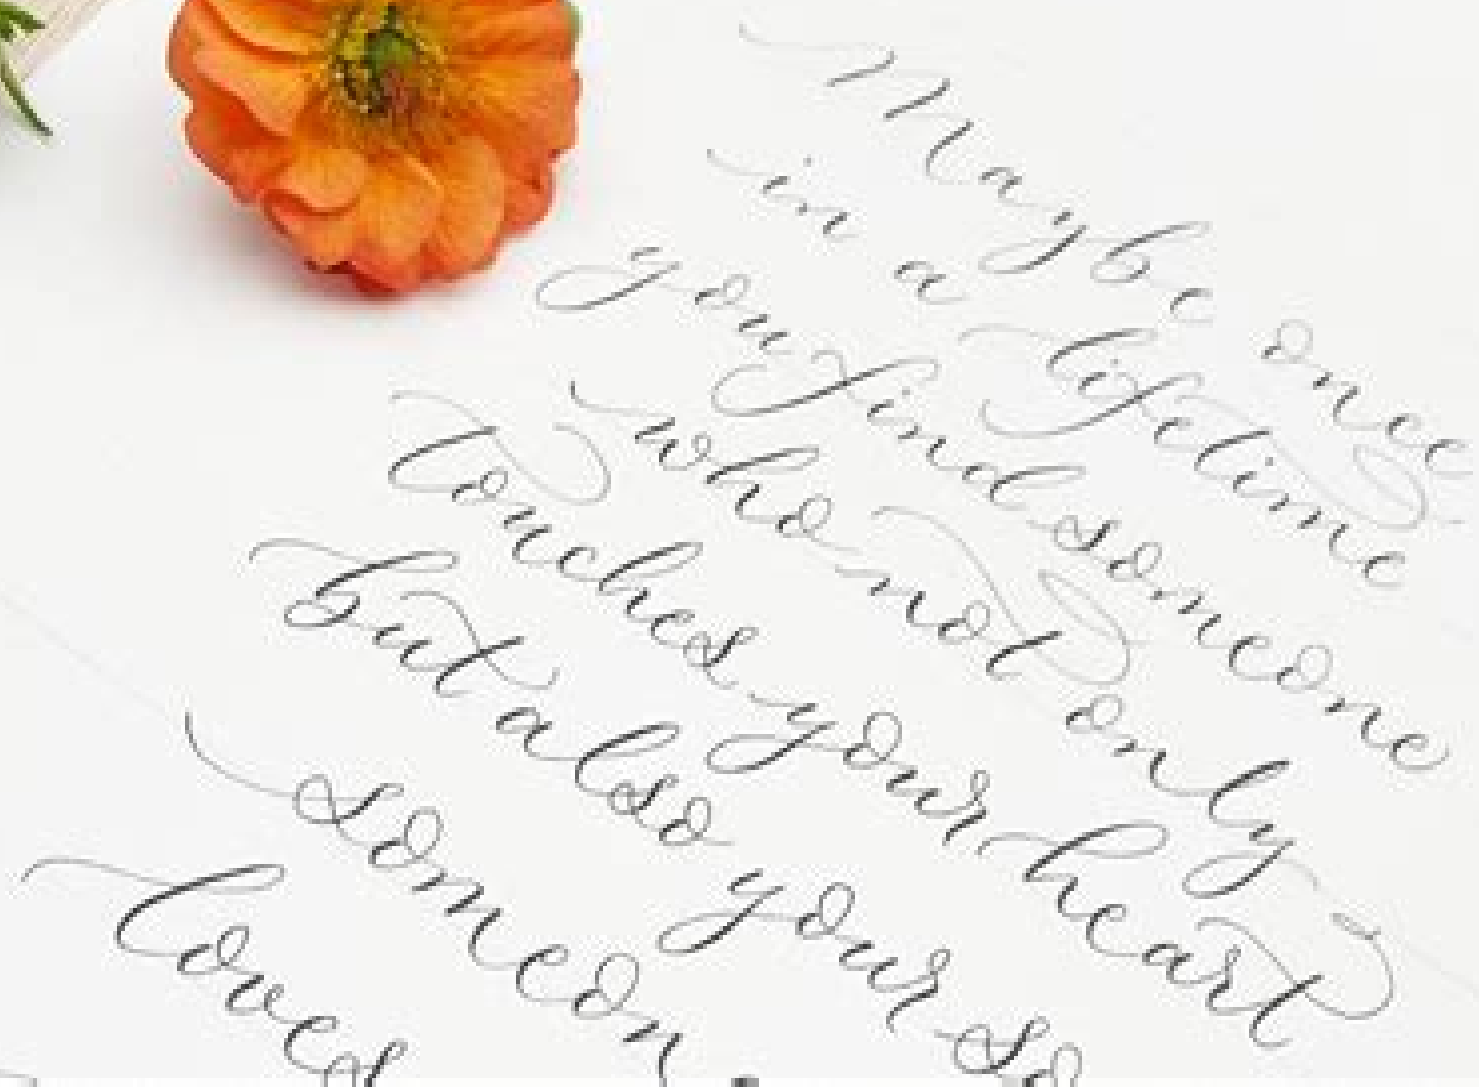 Maybe once
in a lifetime
you find someone
who not only
touches your heart
but also your so
someon
loves